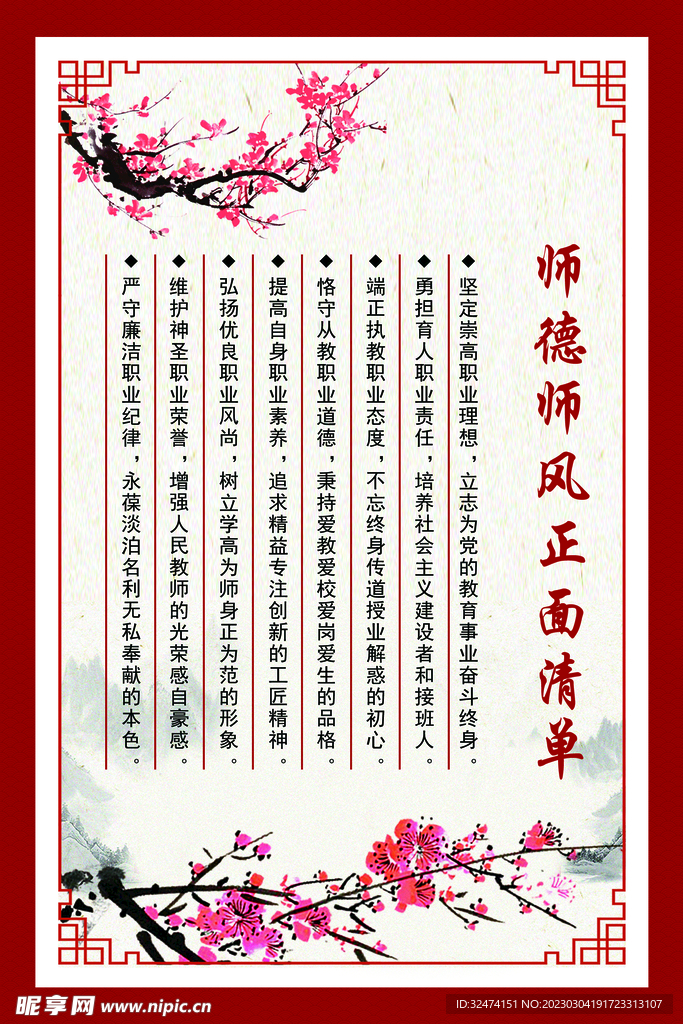 师德师风正面清单
◆坚定崇高职业理想，立志为党的教育事业奋斗终身。
◆勇担育人职业责任，培养社会主义建设者和接班人。
◆端正执教职业态度，不忘终身传道授业解惑的初心。
◆恪守从教职业道德，秉持爱教爱校爱岗爱生的品格。
◆提高自身职业素养，追求精益专注创新的工匠精神。
◆弘扬优良职业风尚，树立学高为师身正为范的形象。
◆维护神圣职业荣誉，增强人民教师的光荣感自豪感。
◆严守廉洁职业纪律，永葆淡泊名利无私奉献的本色。
昵享网 www.nipic.cn
ID:32474151 NO:20230304191723313107